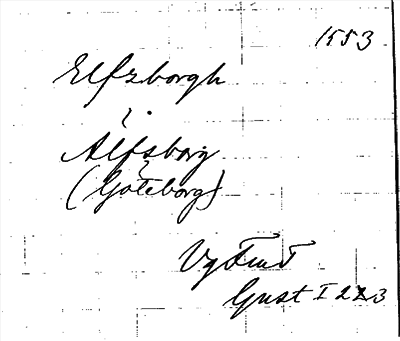 1553
Elfzborgh
Älfsborg
(Göteborg)
Gust I 223